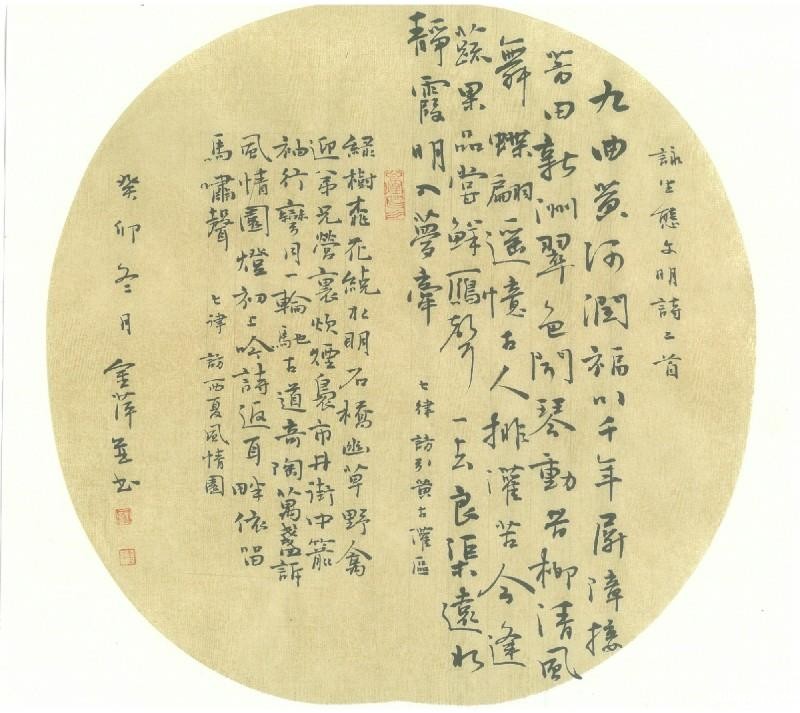 詠生態文明詩二首
九曲黄河潤福川千年屏障接
田新洲翠色琴動柳清風
舞蝶翩遥憶古人排灌苦今逢
蔬果品嘗鮮鷗聲一去良渠遠水
靜霞明入夢牽 七律 訪引黄古灌區
緑樹花繞水明石橋幽草野禽
迎弟兄營裏炊煙裊市井街中籠
袖行彎月一輪馳古道奇陶萬盞訴
風情園燈初上吟詩返耳畔依留
馬嘯聲 七律 訪西夏風情園
癸卯冬月金萍並书